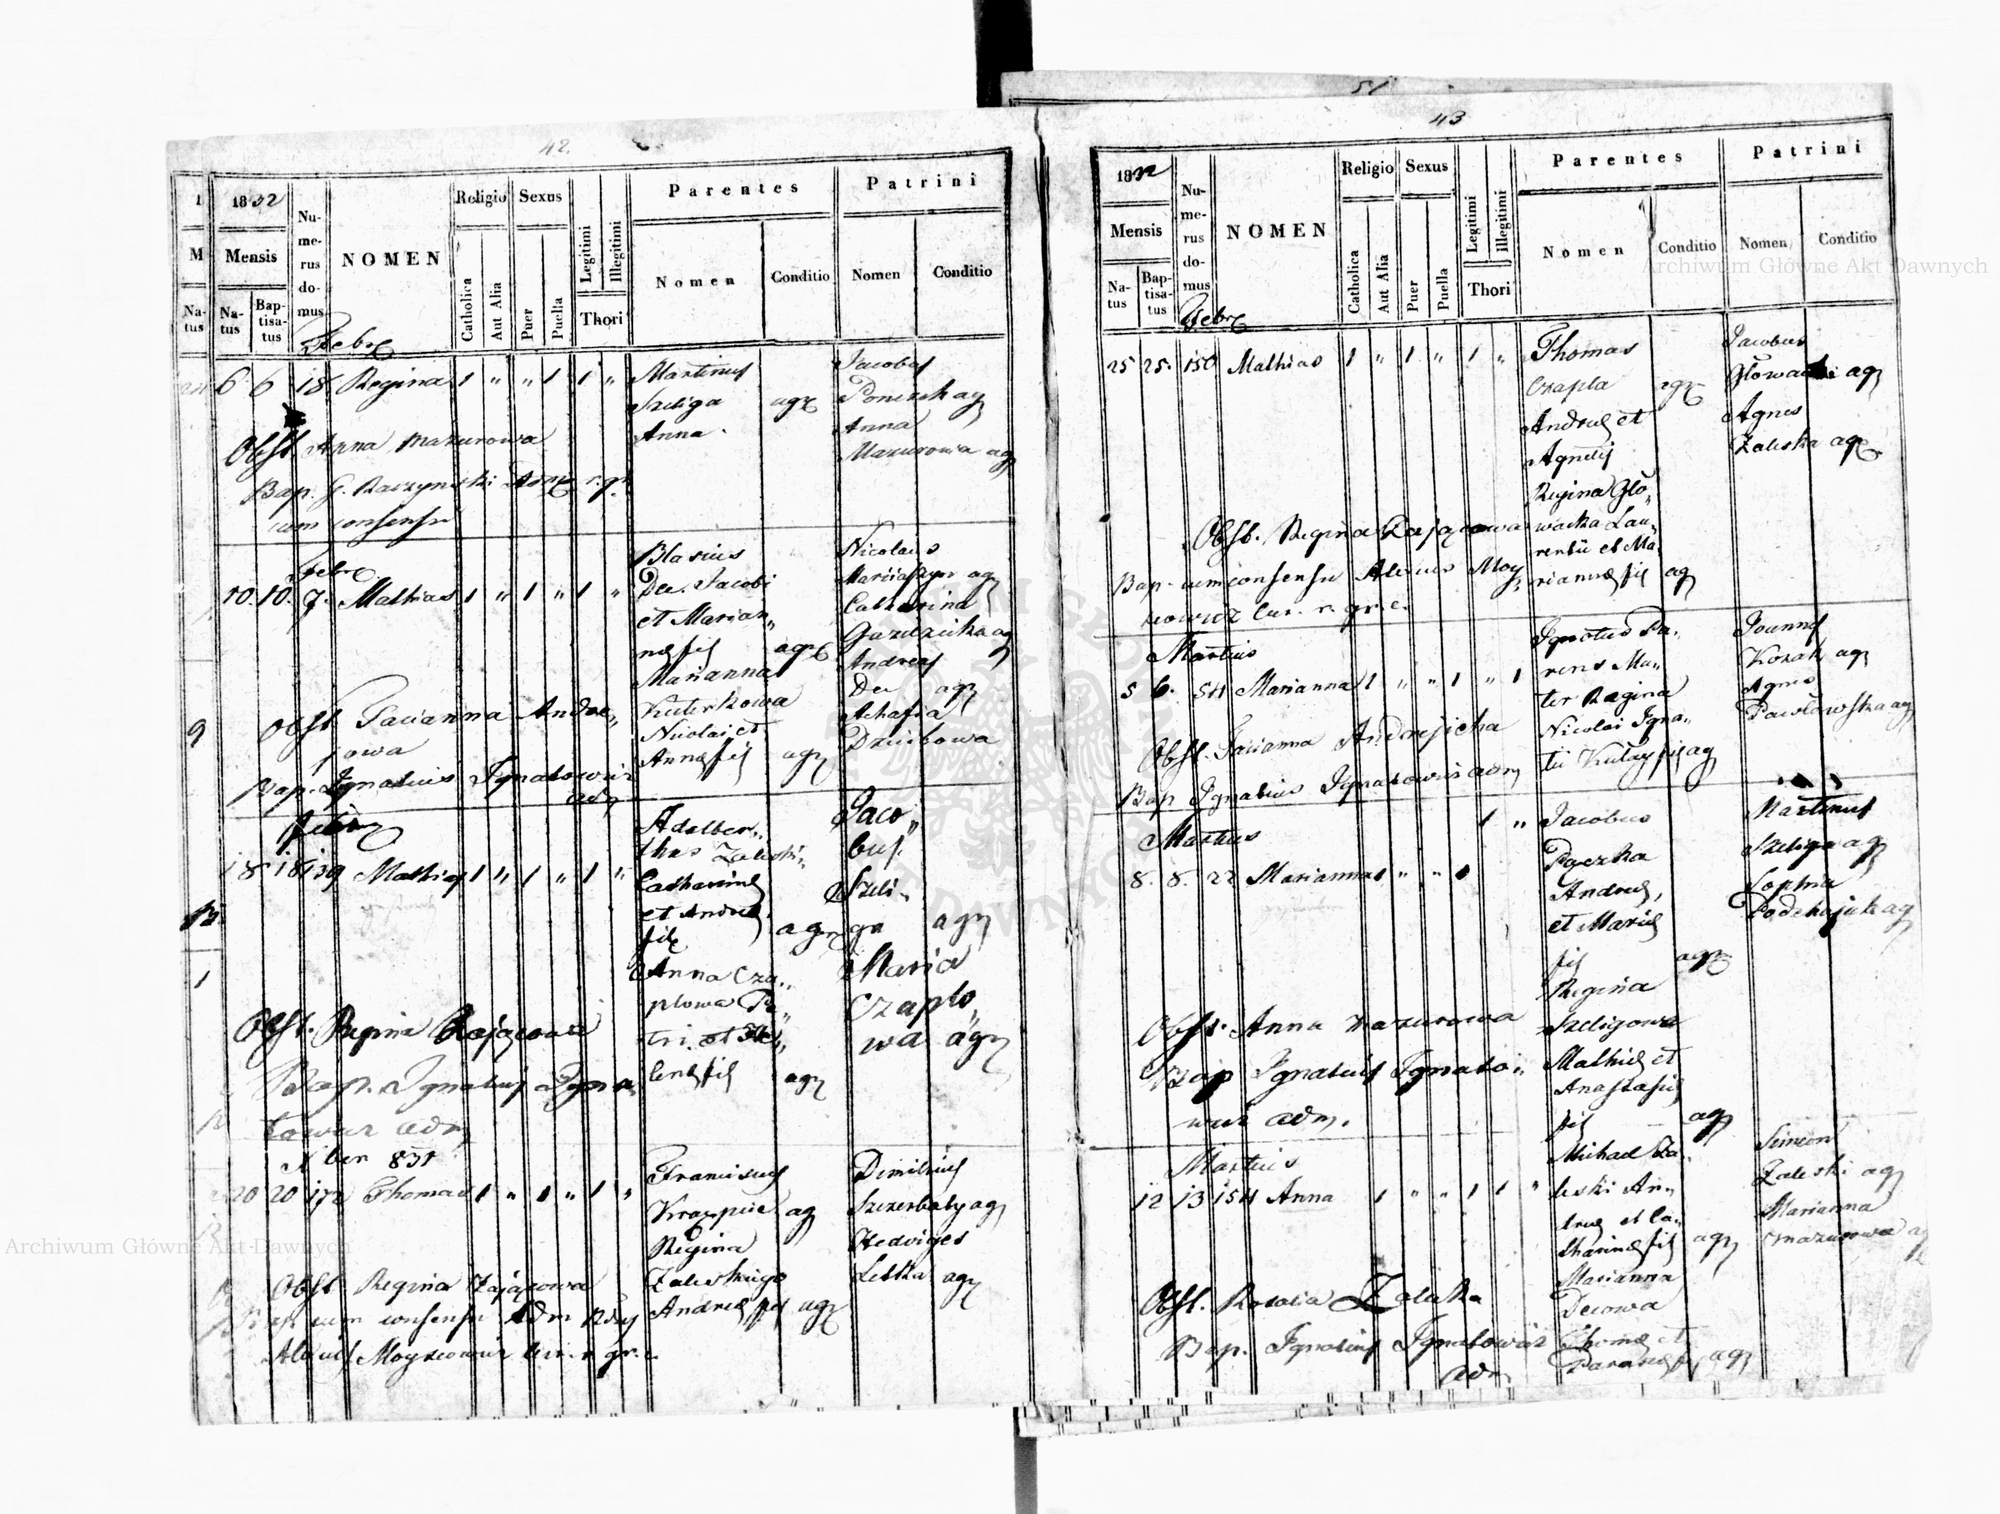 42.
1832
Mensis
Natus
Baptisatus
Numerus domus
NOMEN
Religio
Catholica
Aut Alia
Sexus
Puer
Puella
Legitimi
Illegitimi
Thori
Parentes
Nomen
Conditio
Patrini
Nomen
Conditio
Febr
6 6 18 Regina 1 " " 1 1 "
Martinus
Szeliga agr
Anna
Jacobus
Poniezek agr
Anna
Mazurowa agr
Obst. Anna Mazurowa
Bap. G. Raczynski
cum consensu
Febr
10. 10. 7. Mathias 1 " 1 " 1 "
Blasius
Dec. Jacobi
et Marian„
næ fil agr
Marianna
Kuterkowa
Nicolai et
Annæ fil agr
Nicolaus
agr
Catharina
Gazdzicka agr
Andreas
Dec agr
Achafia
Dziubowa
Obst. Tacianna Andre„
jowa
Bap. Ignatius Ignatowicz
adm
Febr
18 18 139 Mathias 1 " 1 " 1 "
Adalber„
thus Zaleski„
Catharinæ
et Andreæ
fil agr
Anna Cza„
plowa Pe„
tri et He„
lenæ fil agr
Jaco„
bus
Szeli„
ga agr
Maria
Czaplo„
wa agr
Obst. Regina Zającowa
Bap. Ignatius Igna„
towicz adm
X ber 831
20 20 172 Thomas 1 " 1 " 1 "
Franciscus
Krazpiec agr
Regina
Zaleskiego
Andreæ fil agr
Dimitrius
Szczerbaty agr
Hedviges
Letka agr
Obst Regina Zającowa
cum consensu Adm
Alexius Moyseowicz Cur. r. gr. c.
43
1832
Mensis
Natus
Baptisatus
Numerus domus
NOMEN
Religio
Catholica
Aut Alia
Sexus
Puer
Puella
Legitimi
Illegitimi
Thori
Parentes
Nomen
Conditio
Patrini
Nomen
Conditio
Febr
25 25. 150 Mathias 1 " 1 " 1 "
Thomas
Czapla agr
Andreæ et
Agnetis
Regina Gło„
wacka Lau„
rentii et Ma„
riannæ fil agr
Jacobus
Głowacki agr
Agnes
Zaleska agr
Obst. Regina Zającowa
Bap. cum consensu Alexius Moy„
seowicz Cur. r. gr. c.
Martius
5 6. 54 Marianna 1 " " 1 " 1
Ignotus Pa„
rens Ma„
ter Regina
Nicolai Igna„
tii agr
Joannes
Kozak agr
Agnes
Pawłowska agr
Obst. Tacianna Andrejicha
Bap Ignatius Ignatowicz adm
Martius
8. 8. 22 Marianna 1 " " 1 1 "
Jacobus
Paczka
Andreæ,
et Mariæ
fil agr
Regina
Szeligowa
Mathiæ et
Anastasiæ
fil agr
Martinus
Szeliga agr
Sophia
agr
Obst. Anna Mazurowa
Bap Ignatius Ignato„
wicz adm.
Martius
12 13 154 Anna 1 " " 1 1 "
Michael Za„
leski An„
dreæ et Ca„
tharinæ fil agr
Marianna
Decowa
Thomæ et
fil agr
Simeon
Zaleski agr
Marianna
Mazurowa agr
Obst. Rosalia Zaleska
Bap. Ignatius Ignatowicz
adm
51
Archiwum Główne Akt Dawnych
Archiwum Główne Akt Dawnych